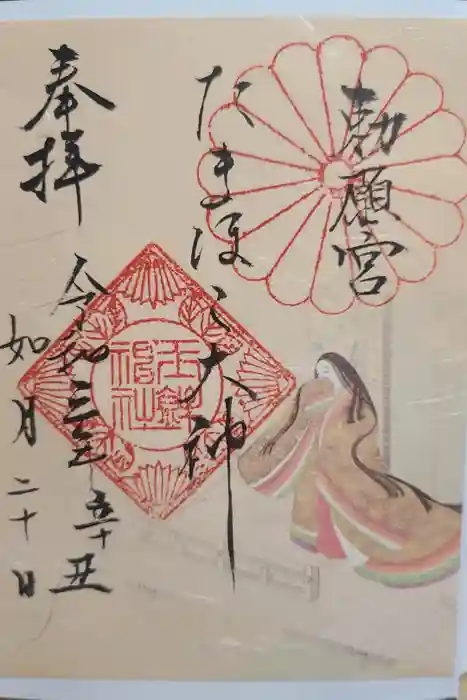 勅願宮
たまほこ大神
奉拝
令和三年辛丑
如月二十日